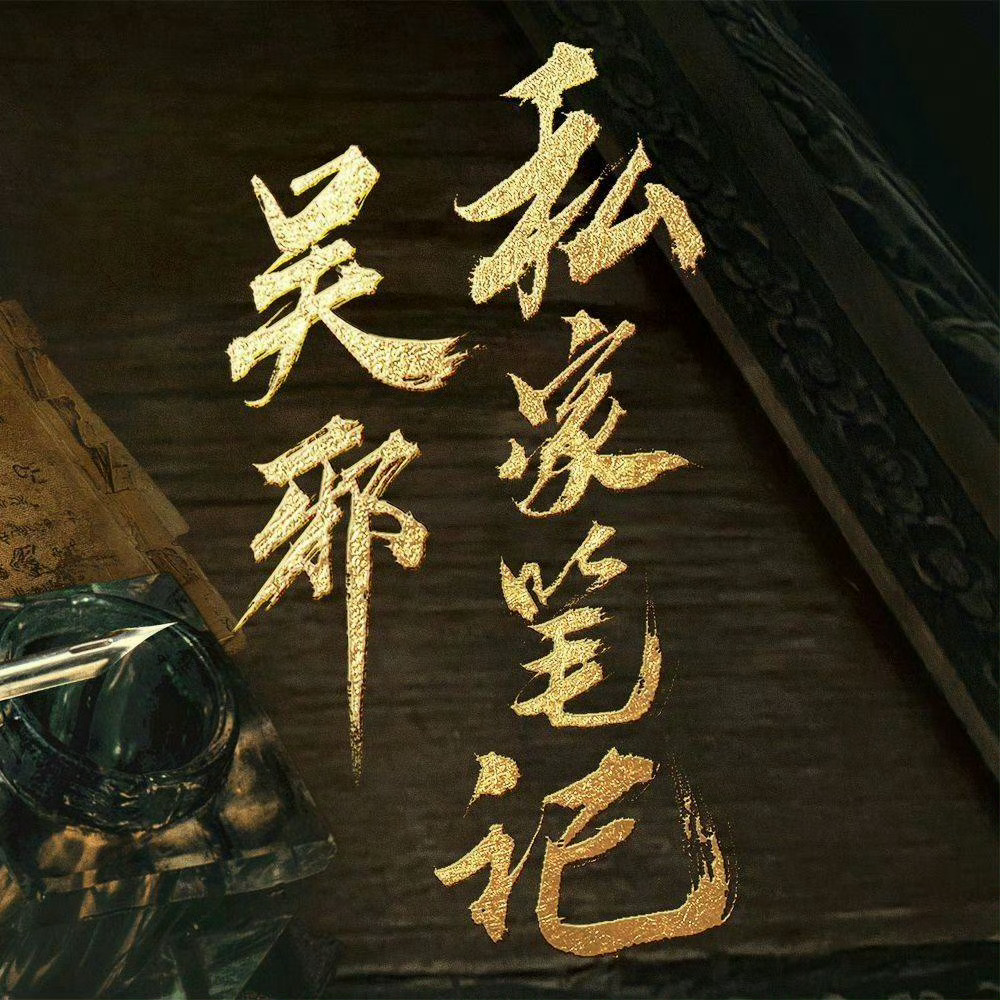 吴邪
私家笔记